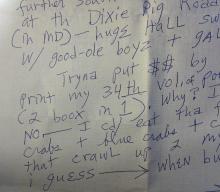 further sou
at the Dixie Pig Rodd
(in MD) — huge HALL su
w/ good-ole boyz + gAL
Tryna put $$ by
print my 34th vol. of Po
(2 boox in 1). Why? I
NO — I cd eat tha c
crabz + blue crabs + c
that crawl up 2 my
i guess → WHEN bu